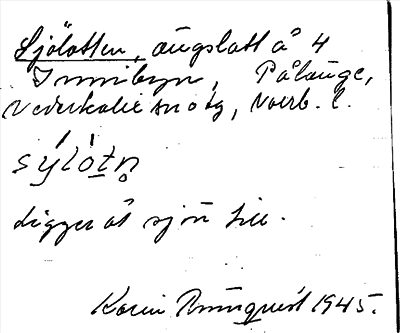 Sjölotten, ängslott å 4
Innibyn, Pålänge,
Nederkalix sn o tg, Norrb. l.
sýlòtn̥
ligger åt sjön till.
Karin Rönnquist 1945.